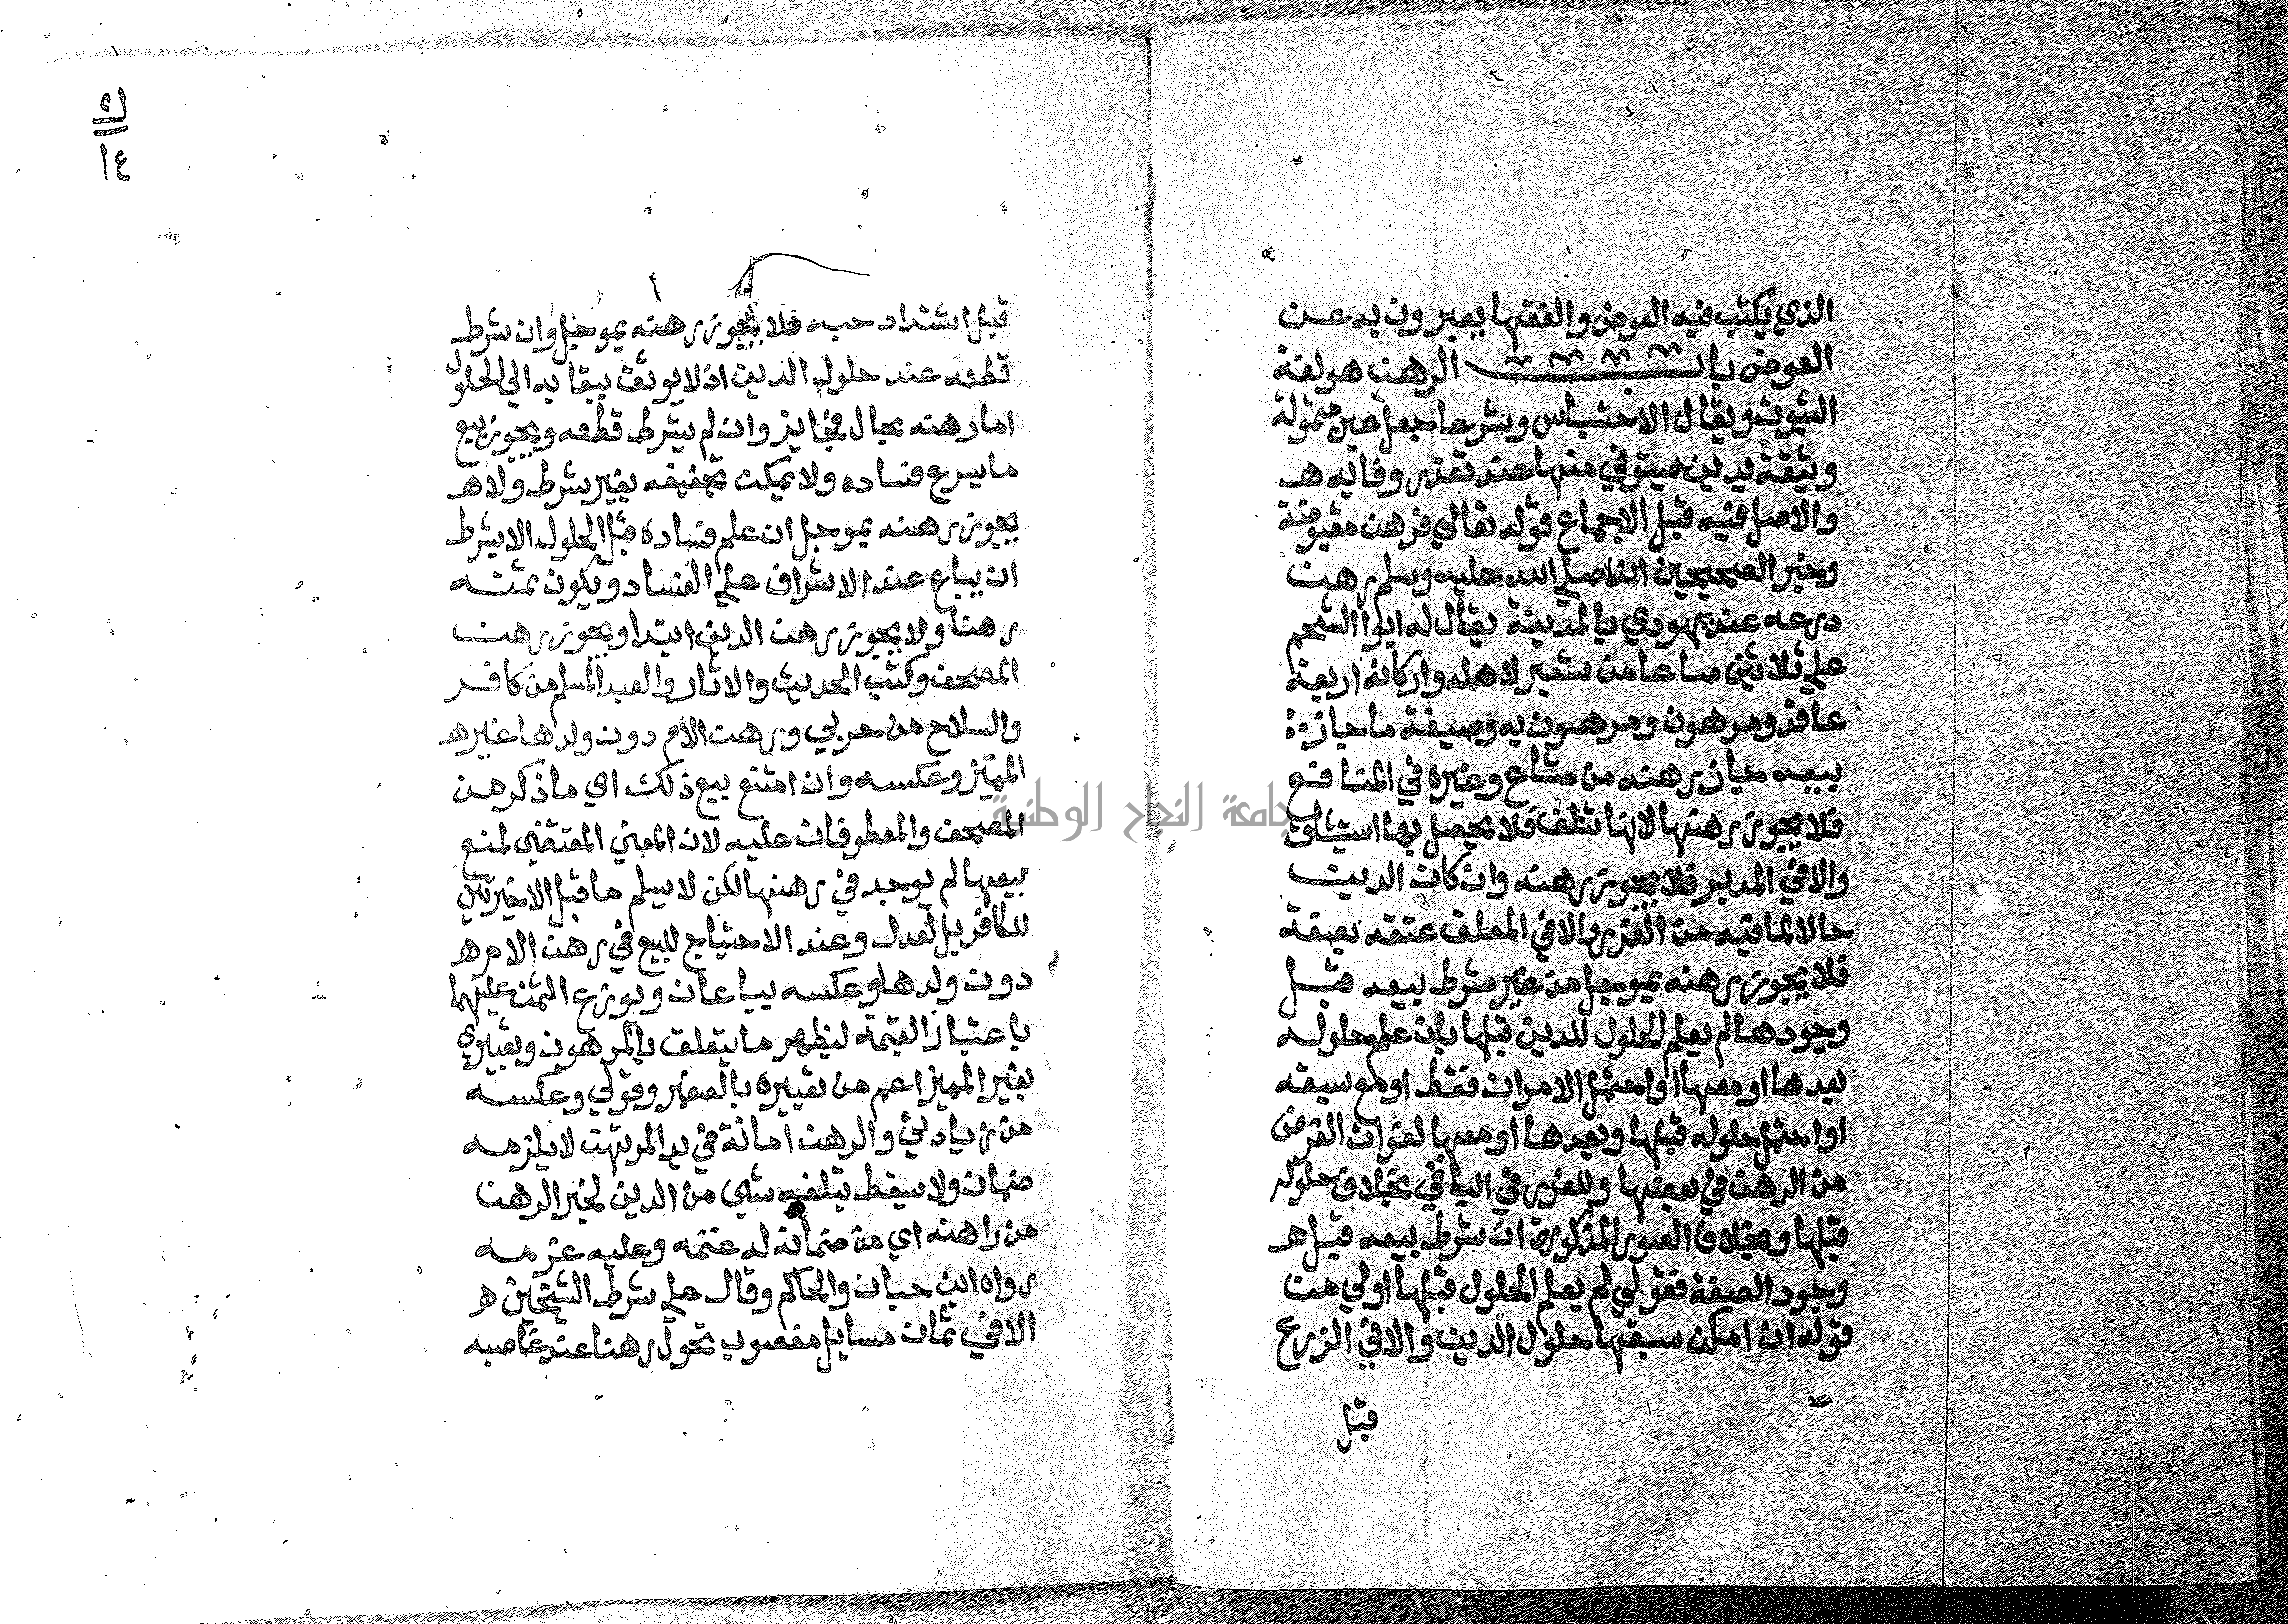 الذي يكتب فيه العوض والفقها يعبرون به عن
العوض باب الرهن هو لغة
الثبوت ويقال الاحتباس وشرعا جعل عين متمولة
وثيقة بدين يستوفي منها عند تعذر وفايه هـ
والاصل فيه قبل الاجماع قوله تعالي فرهن مقبوضة
وخبر الصحيحين انه صلي الله عليه وسلم رهن
درعه عند يهودي بالمدينة يقال له ابوا الشحم
علي ثلاثين صاعا من شعير لاهله واركانه اربعة
عاقد ومرهون ومرهون به وصيغة ما جاز
بيعه جاز رهنه من مشاع وغيره في المنافع
فلا يجوز رهنها لانها تتلف فلا يحصل بها استيثاق
والا في المدبر فلا يجوز رهنه وان كان الدين
حالا لما فيه من الغرر والا في المعلق عتقه بصفة
فلا يجوز رهنه بموجل من غير شرط بيعه قبل
وجودها لم يعلم الحلول للدين قبلها بان علم حلوله
بعدها او معها او احتمل الامران فقط او مع سبقه
او احتمل حلوله قبلها وبعدها او معها لفوات الغرض
من الرهن في بعضها وللغرر في الباقي بخلاف حلوله
قبلها وبخلاف الصور المذكورة ان شرط بيعه قبل هـ
وجود الصفة فقولي لم يعلم الحلول قبلها اولي من
قوله ان امكن سبقها حلول الدين والا في الزرع
قبل
قبل اشتداد حبه فلا يجوز رهنه بموجل وان شرط
قطعه عند حلول الدين اذ لا يوثق ببقايه الي الحلول
اما رهنه بحال فجايز وان لم يشرط قطعه ويجوز بيع
ما يسرع فساده ولا يمكن تجفيفه بغير شرط ولا هـ
يجوز رهنه بموجل ان علم فساده قبل الحلول الا بشرط
ان يباع عند الاشراف علي الفساد ويكون ثمنه
رهنا ولا يجوز رهن الدين ابتدا ويجوز رهن
المصحف وكتب الحديث والاثار والعبد المسلم من كافر
والسلاح من حربي ورهن الام دون ولدها غير هـ
المميز وعكسه وان امتنع بيع ذلك اي ما ذكر من
المصحف والمعطوفات عليه لان المعني المقتضي لمنع
بيعها لم يوجد في رهنها لكن لا يسلم ما قبل الاخيرتين
للكافر بل لعدل وعند الاحتياج للبيع في رهن الام هـ
دون ولدها وعكسه يباعان ويوزع الثمن عليهما
باعتبار القيمة ليظهر ما يتعلق بالمرهون وتعبيري
بغير المميز اعم من تعبيره بالصغير وقولي وعكسه
من زيادتي والرهن امانة في يد المرتهن لا يلزمه
ضمان ولا يسقط بتلفه شي من الدين لخبر الرهن
من راهنه اي من ضمانه له غنمه وعليه غرمه
رواه ابن حبان والحاكم وقال علي شرط الشيخين هـ
الا في ثمان مسايل مغصوب تحول رهنا عند غاصبه
١٤
جامعة النجاح الوطنية